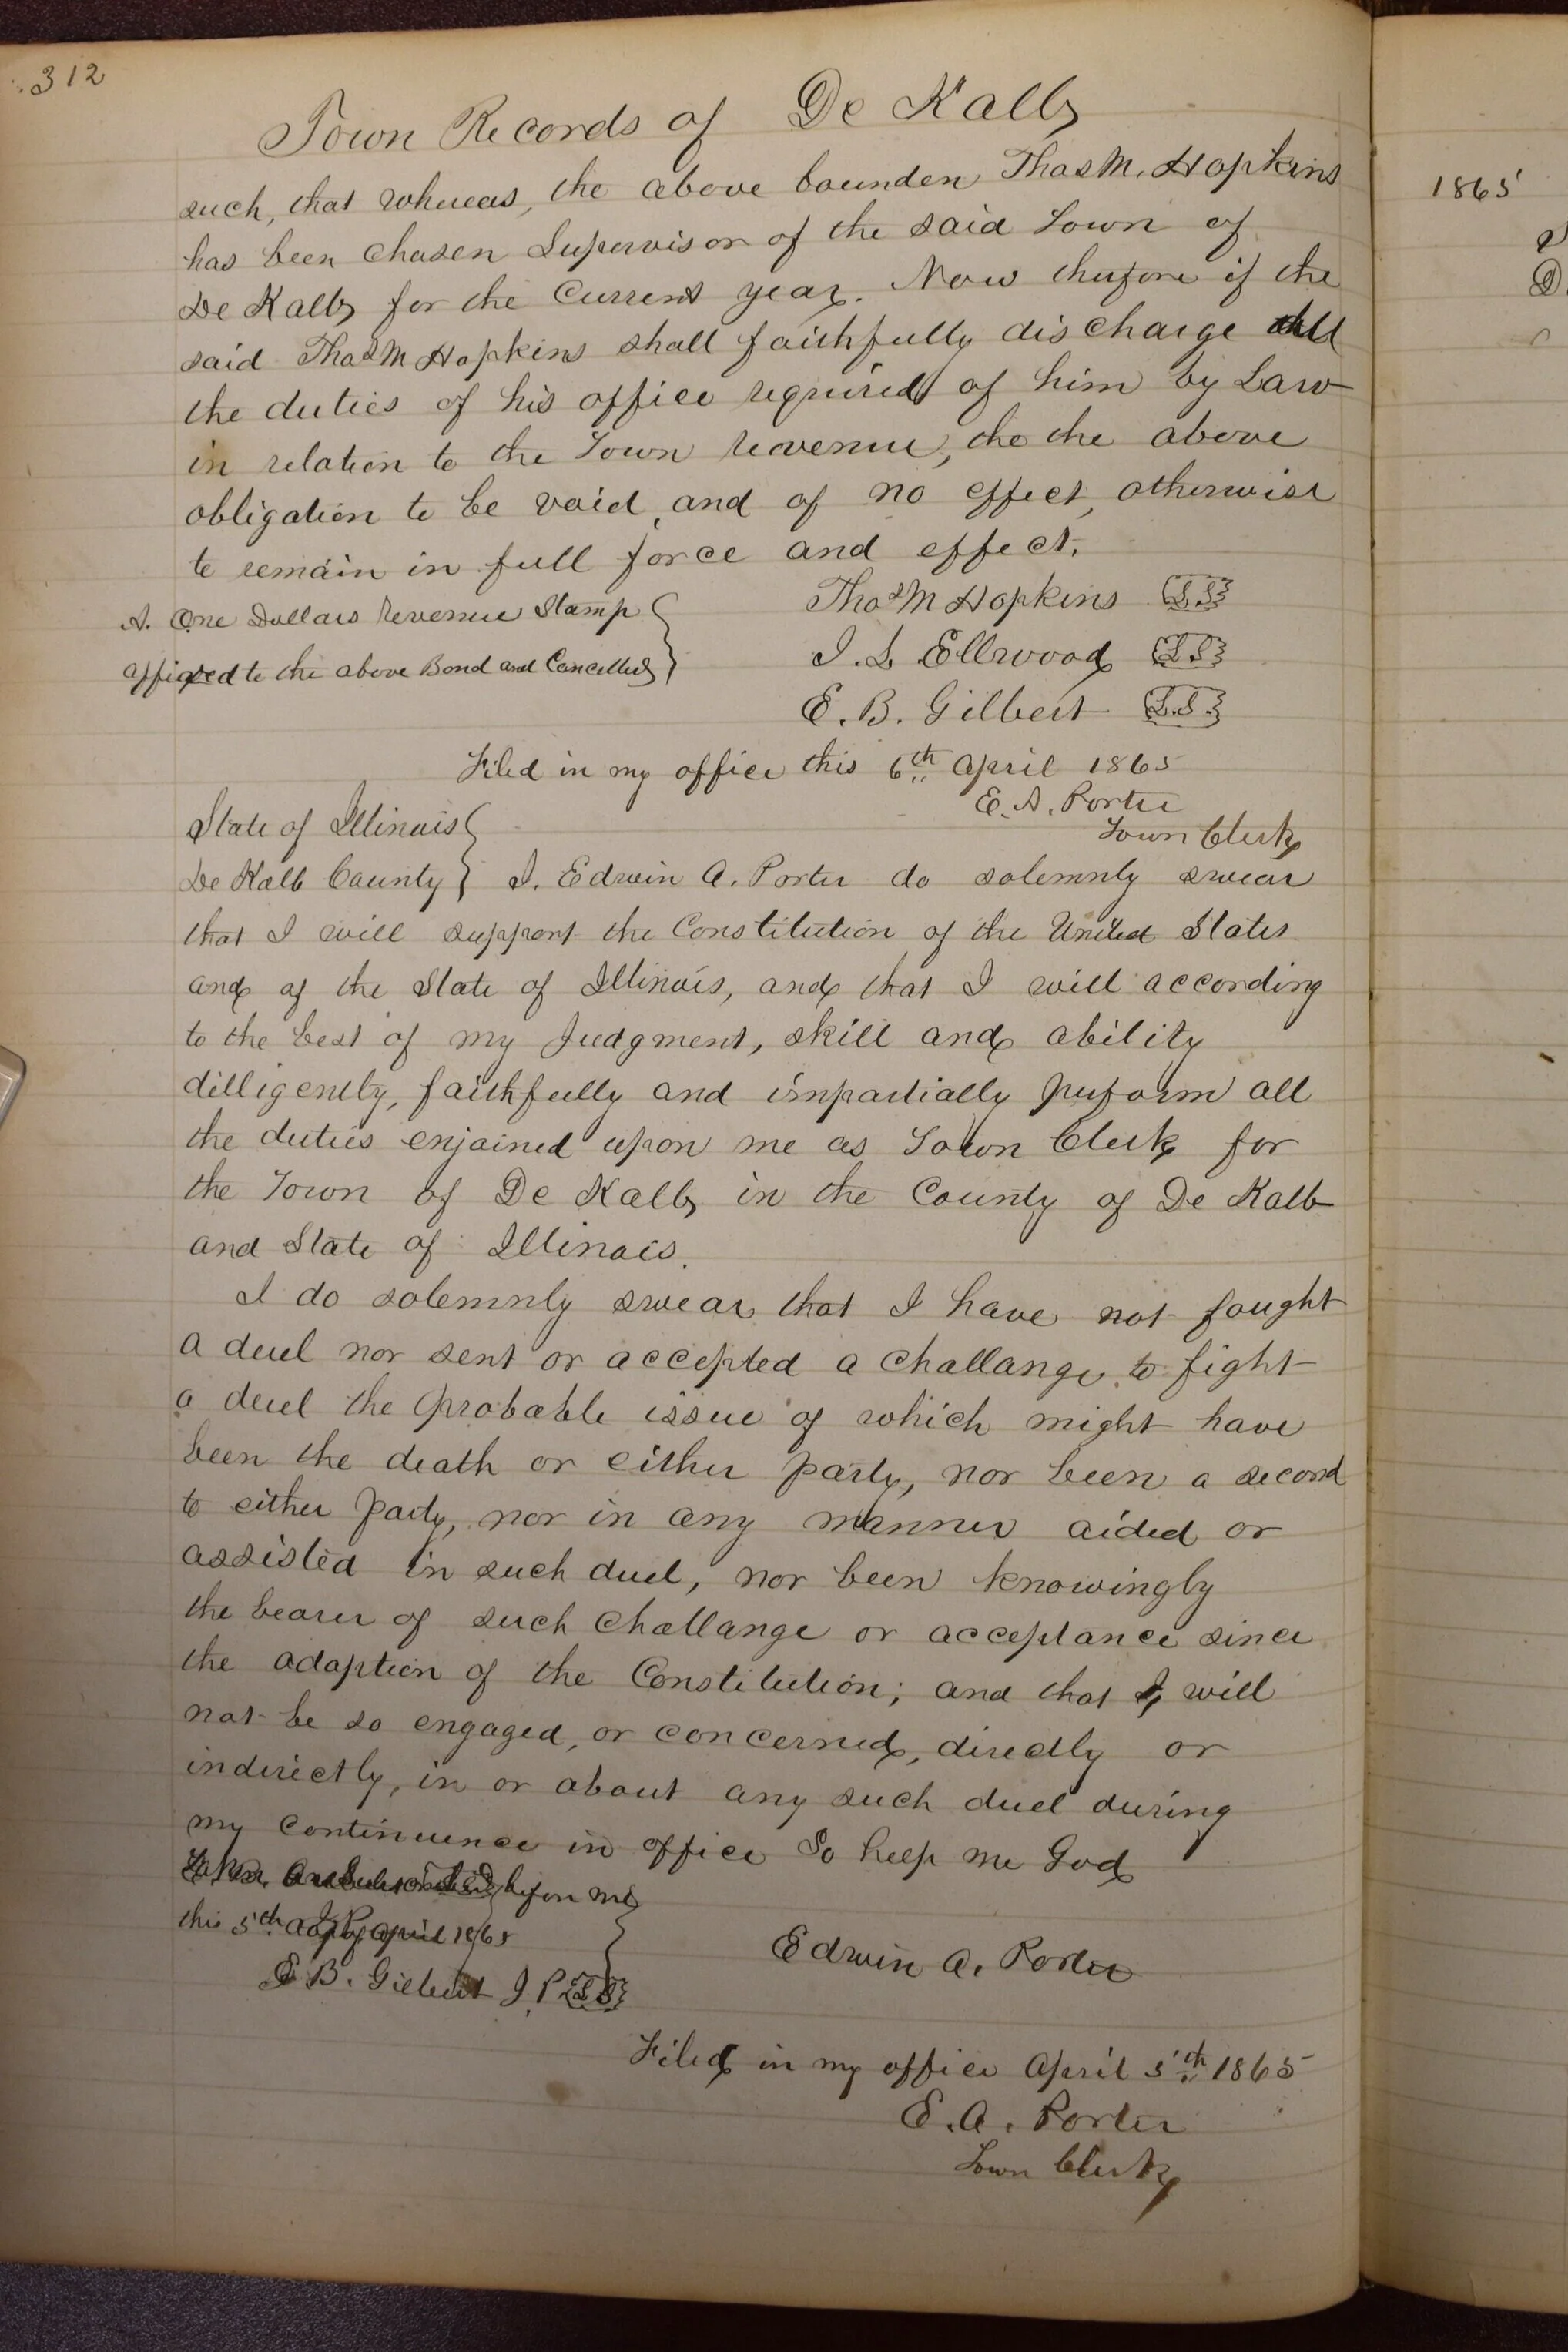 312
Town Records of De Kalb
such, that whereas, the above bounden Thos M. Hopkins
has been chosen Supervisor of the said Town of
De Kalb for the Current year. Now therefore if the
said Thos M Hopkins shall faithfully discharge all
the duties of his office required of him by Law
in relation to the Town revenue, the the above
obligation to be void, and of no effect, otherwise
to remain in full force and effect.
Thos M Hopkins L.S.
A. One Dollars Revenue Stamp
I. L. Ellwood L.S.
affixed to the above Bond and Cancelled
E. B. Gilbert L.S.
Filed in my office this 6th April 1865
E. A. Porter
Town Clerk
State of Illinois
De Kalb County } I. Edwin A. Porter do solemnly swear
that I will support the Constitution of the United States
and of the State of Illinois, and that I will according
to the best of my Judgment, skill and ability
dilligently, faithfully and impartially perform all
the duties enjoined upon me as Town Clerk for
the Town of De Kalb in the County of De Kalb
and State of Illinois.
I do solemnly swear that I have not fought
a duel nor sent or accepted a challange to fight
a duel the probable issue of which might have
been the death or either party, nor been a second
to either party, nor in any manner aided or
assisted in such duel, nor been knowingly
the bearer of such challange or acceptance since
the adoption of the Constitution; and that I will
not be so engaged, or concerned, directly or
indirectly, in or about any such duel during
my continuence in office So help me God
before me
this 5th day of April 1865
Edwin A. Porter
E B. Gilbert J. P. L.S.
Filed in my office April 5th 1865
E. A. Porter
Town Clerk
1865